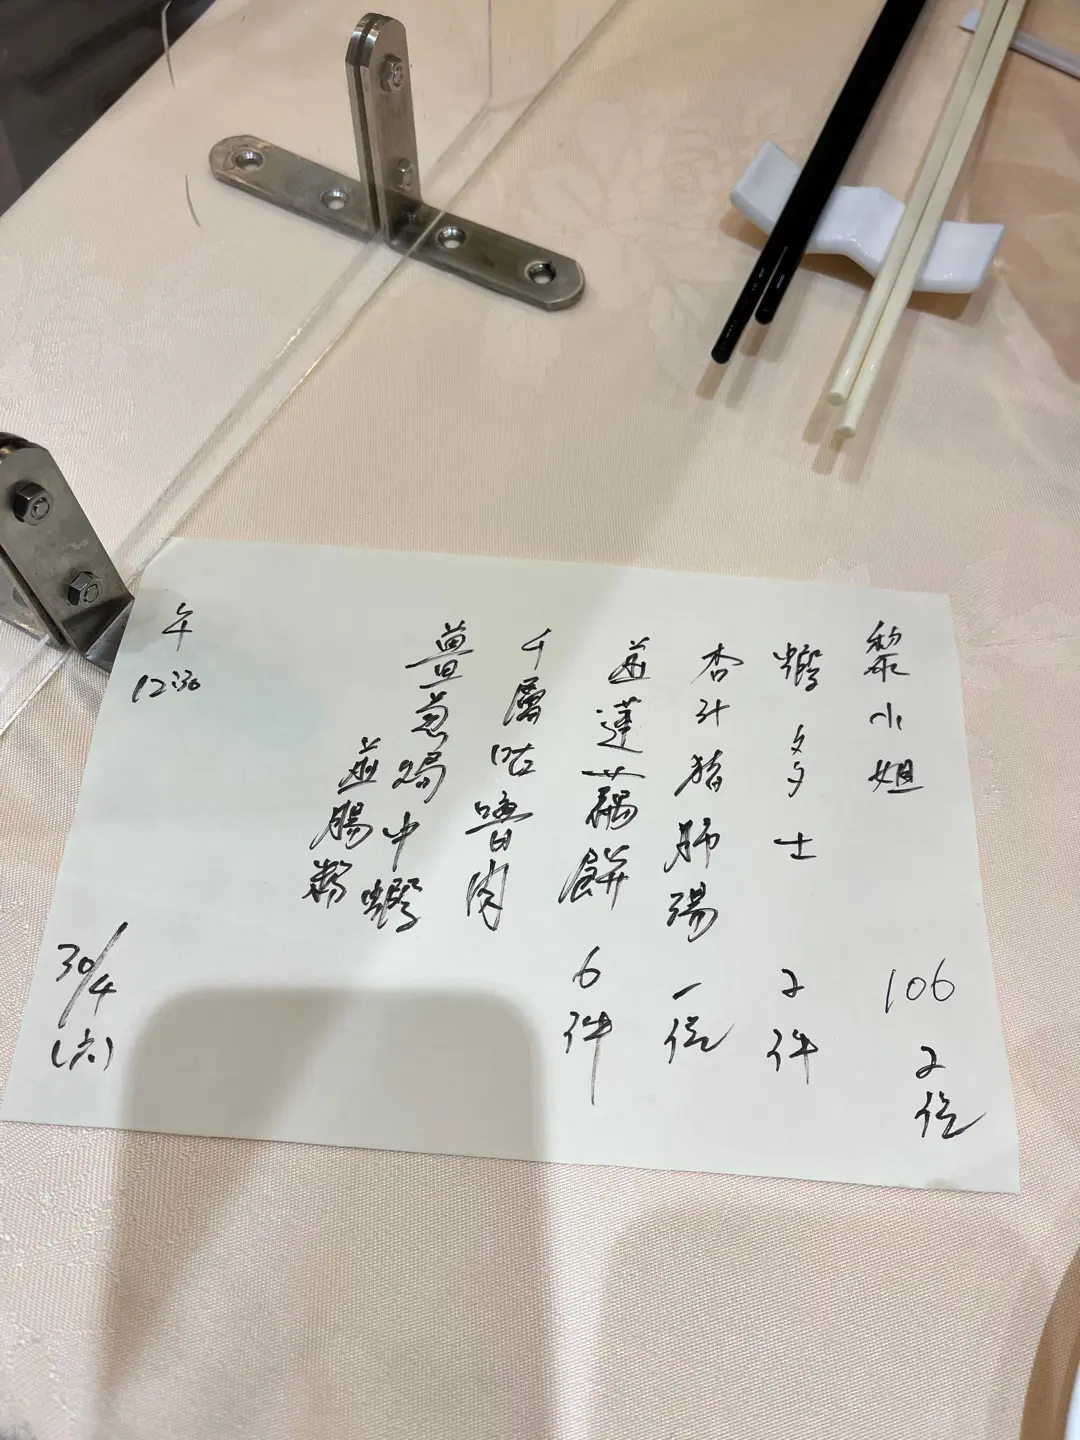 黎小姐 106 2位
蝦多士 2件
杏汁豬肺湯 一位
煎蓮藕餅 6件
千層咕嚕肉
薑葱焗中蝦
煎腸粉
午 12:30
30/4 (六)